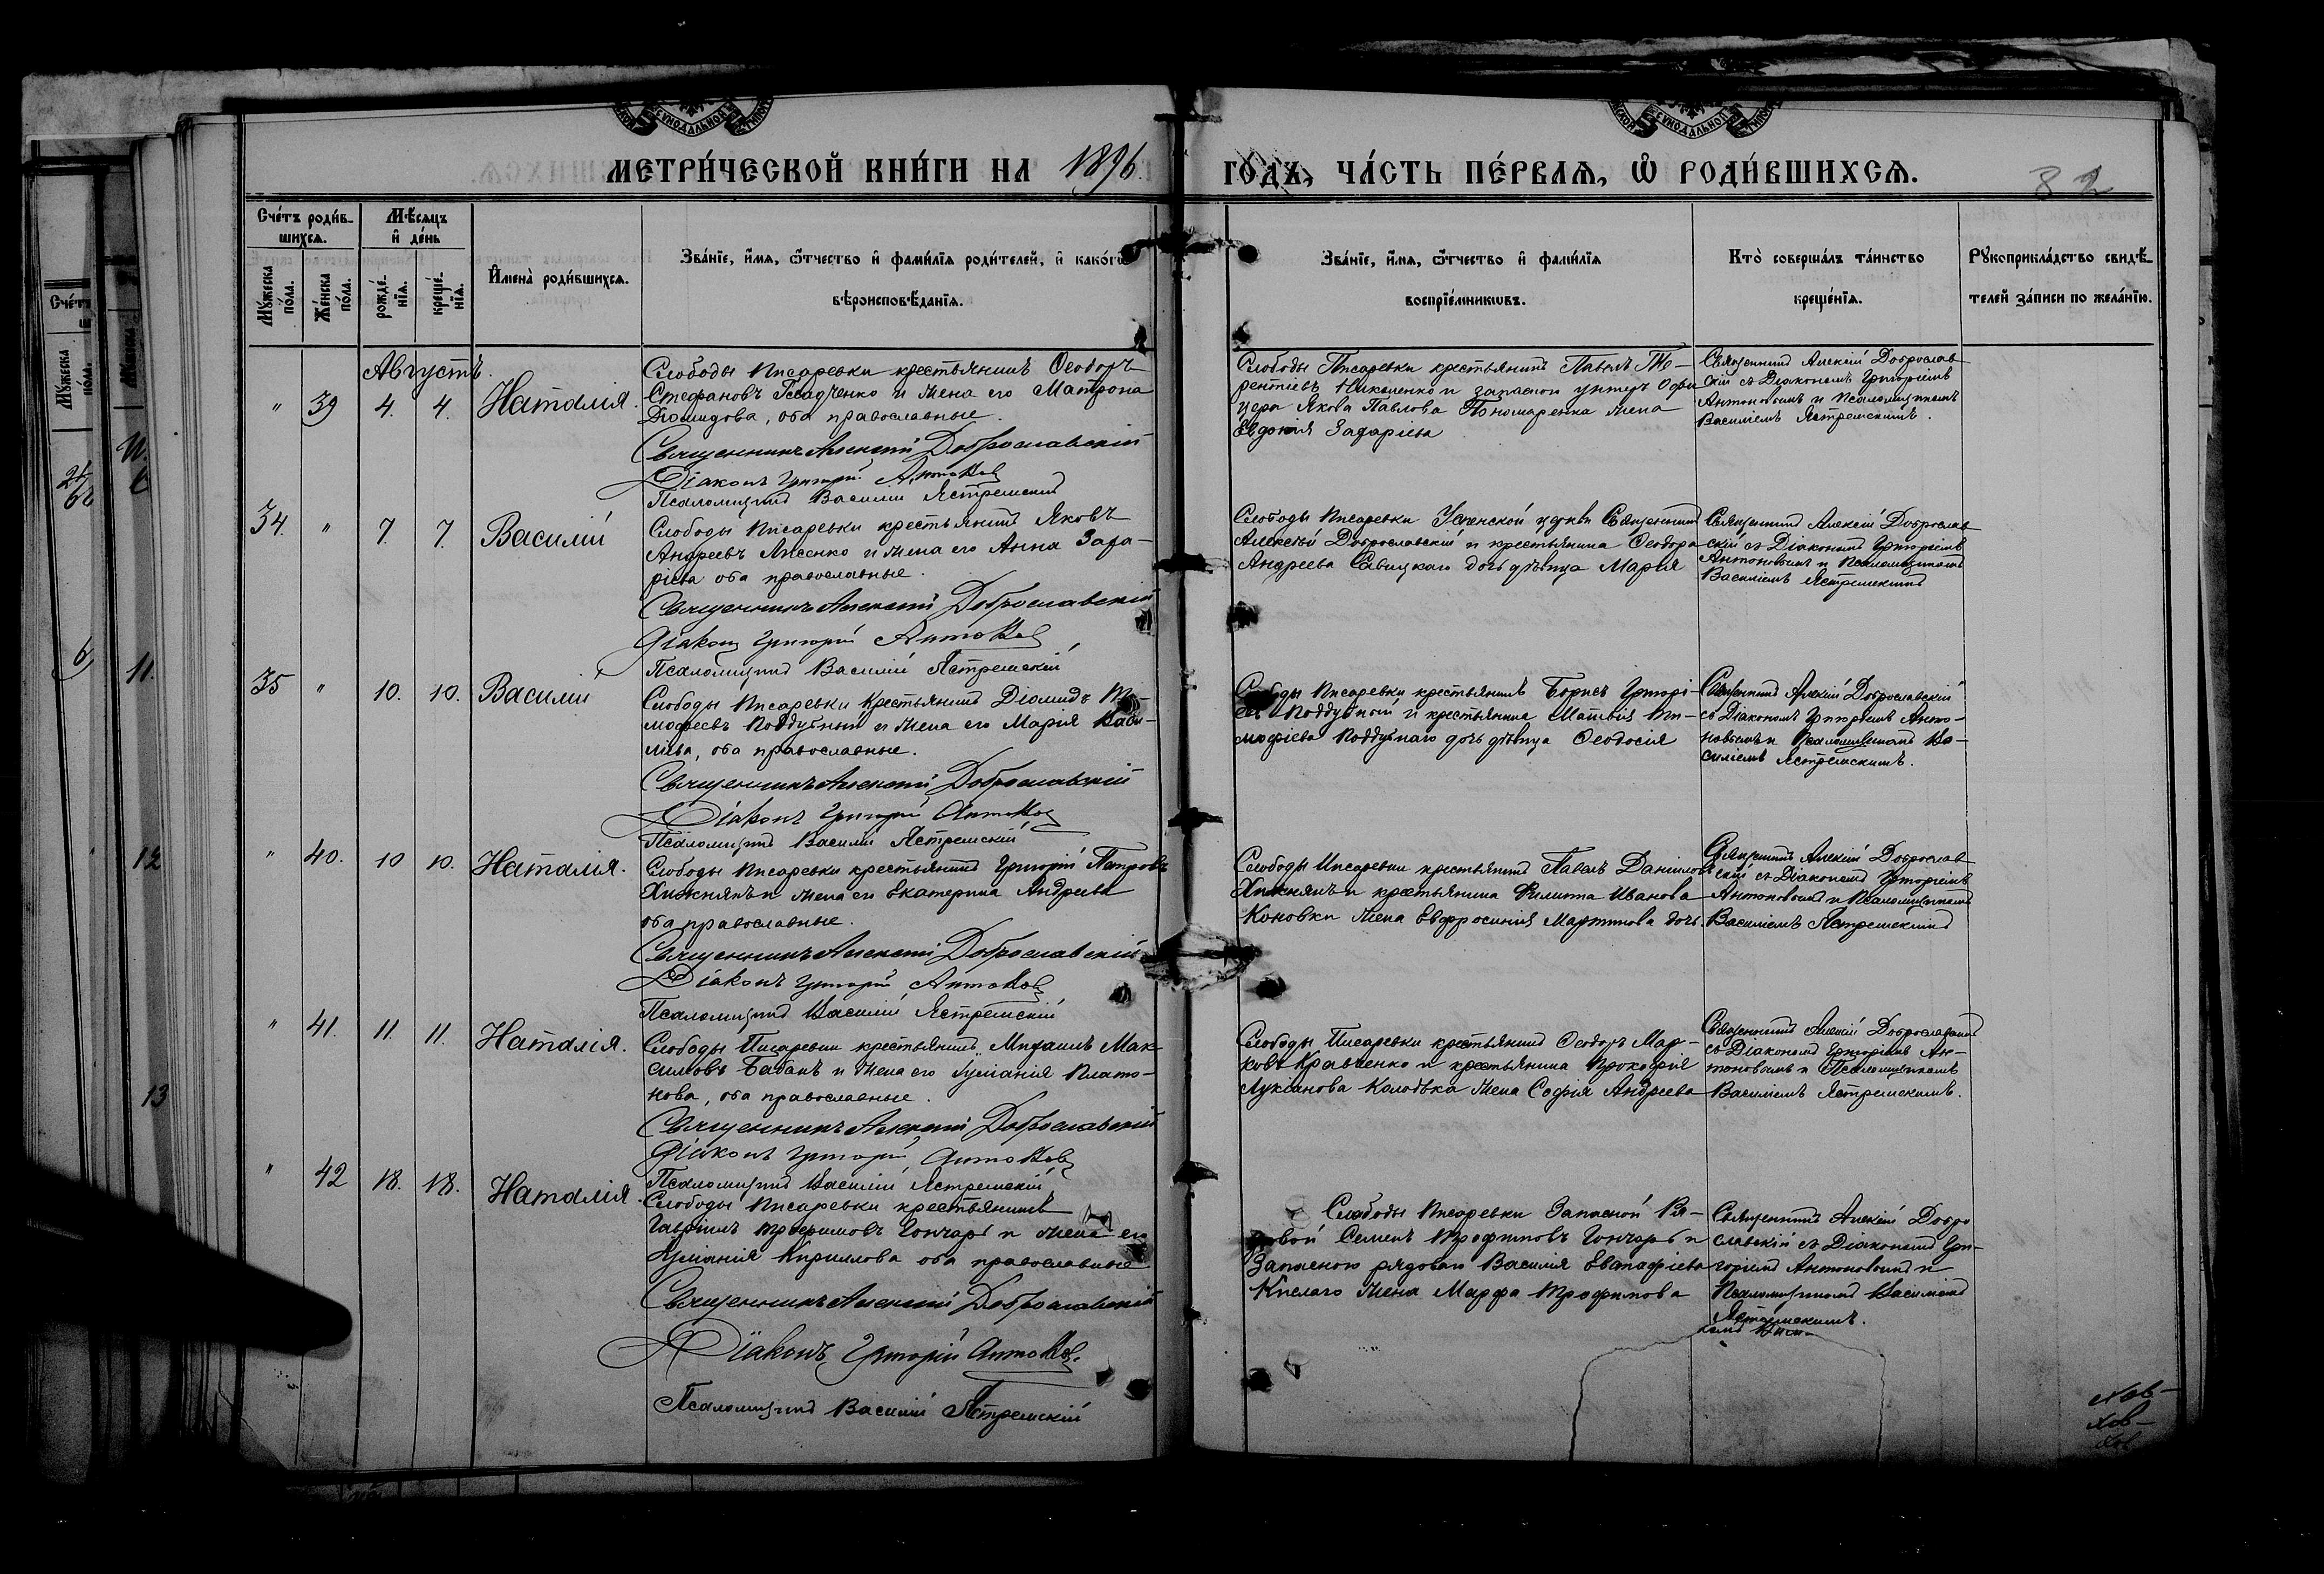 МЕТРИ́ЧЕСКОЙ КНИ́ГИ НА 1896 ГО́ДЪ, ЧА́СТЬ ПЕ́РВАѦ, Ѽ РОДИ́ВШИХСѦ.
82
Сче́тъ роди́в-
шихсѧ.
Мѣ́сѧцъ
и҆ де́нь
Мꙋ́жеска по́ла.
Же́нска по́ла.
рожде́-нїѧ.
креще́-нїѧ.
И҆мена̀ роди́вшихсѧ.
Зва́нїе, и҆́мѧ, ѻ҆́тчество и҆ фами́лїѧ роди́телей, и҆ како́гѡ
вѣроисповѣ́данїѧ.
Зва́нїе, и҆́мѧ, ѻ҆́тчество и҆ фами́лїѧ
воспрїе́мникѡвъ.
Кто̀ соверша́лъ та́инство
креще́нїѧ.
Рꙋкоприкла́дство свидѣ́-
телей за́писи по жела́нїю.
Августъ.
" 39 4. 4. Наталія.
Слободы Писаревки крестьянинъ Ѳеодоръ
Стефановъ и жена его Матрона
Діомидова, оба православные.
Священникъ Алексій Доброславскій
Діаконъ Григорій Антонов
Псаломщикъ Василій Ястремскій
Слободы Писаревки крестьянинъ Павелъ Те-
рентіевъ Николенко и запасной унтеръ Офи
цера Якова Павлова Пономаренка жена
Евдокія Захаріева
Священникъ Алексій Доброслав
скій съ Діакономъ Григоріемъ
Антоновымъ и Псаломщикомъ
Василіемъ Ястремскимъ.
34. " 7. 7. Василій
Слободы Писаревки крестьянинъ Яковъ
Андреевъ Лисенко и жена его Анна Заха-
ріева оба православные.
Священникъ Алексій Доброславскій
Діаконъ Григорій Антонов
Псаломщикъ Василій Ястремскій
Слободы Писаревки Успенской церкви Священникъ
Алексѣй Доброславскій и крестьянина Ѳеодора
Андреева Савицкаго дочь дѣвица Марія
Священникъ Алексій Доброслав
скій съ Діакономъ Григоріемъ
Антоновымъ и Псаломщикомъ
Василіемъ Ястремскимъ
35 " 10. 10. Василій
Слободы Писаревки Крестьянинъ Діомидъ Ти-
мофеевъ Поддубный и жена его Марія Васи-
ліева, оба православные.
Священникъ Алексій Доброславскій
Діаконъ Григорій Антонов
Псаломщикъ Василій Ястремскій
Слободы Писаревки крестьянинъ Борисъ Григорі-
евъ Поддубный и крестьянина Матвѣя Ти-
мофіева Поддубнаго дочь дѣвица Ѳеодосія
Священникъ Алексій Доброславскій
съ Діакономъ Григоріемъ Анто-
новымъ и Псаломщикомъ Ва-
силіемъ Ястремскимъ.
" 40. 10 10. Наталія.
Слободы Писаревки крестьянинъ Григорій Петровъ
Хижнякъ и жена его Екатерина Андреева
оба православные.
Священникъ Алексій Доброславскій
Діаконъ Григорій Антонов
Псаломщикъ Василій Ястремскій
Слободы Писаревки крестьянинъ Павелъ Даніилов
Хижнякъ и крестьянина Филиппа Иванова
Коновки жена Евфросинія Мартинова дочь.
Священникъ Алексій Доброслав
скій съ Діакономъ Григоріемъ
Антоновымъ и Псаломщикомъ
Василіемъ Ястремскимъ
" 41. 11. 11. Наталія.
Слободы Писаревки крестьянинъ Михаилъ Мак-
симовъ Бабакъ и жена его Іуліанія Плато-
нова, оба православные.
Священникъ Алексій Доброславскій
Діаконъ Григорій Антонов
Псаломщикъ Василій Ястремскій
Слободы Писаревки крестьянинъ Ѳеодоръ Мар-
ковъ Кравченко и крестьянина Прокофія
Лукіанова Колодѣка жена Софія Андреева
Священникъ Алексій Доброславскій
съ Діакономъ Григоріемъ Ан-
тоновымъ и Псаломщикомъ
Василіемъ Ястремскимъ.
" 42 18. 18. Наталія.
Слободы Писаревки крестьянинъ
Гавріилъ Трофимовъ Гончаръ и жена его
Іуліанія Кириллова оба православные
Священникъ Алексій Доброславскій
Діаконъ Григорій Антонов.
Псаломщикъ Василій Ястремскій
Слободы Писаревки Запасной Ря-
довой Семенъ Трофимовъ Гончаръ и
Запасного рядового Василія Евстафіева
Кислаго жена Марфа Трофимова
Священникъ Алексій Добро
славскій съ Діакономъ Гри-
горіемъ Антоновымъ и
Псаломщикомъ Василіемъ
Ястремскимъ.
11.
12
13